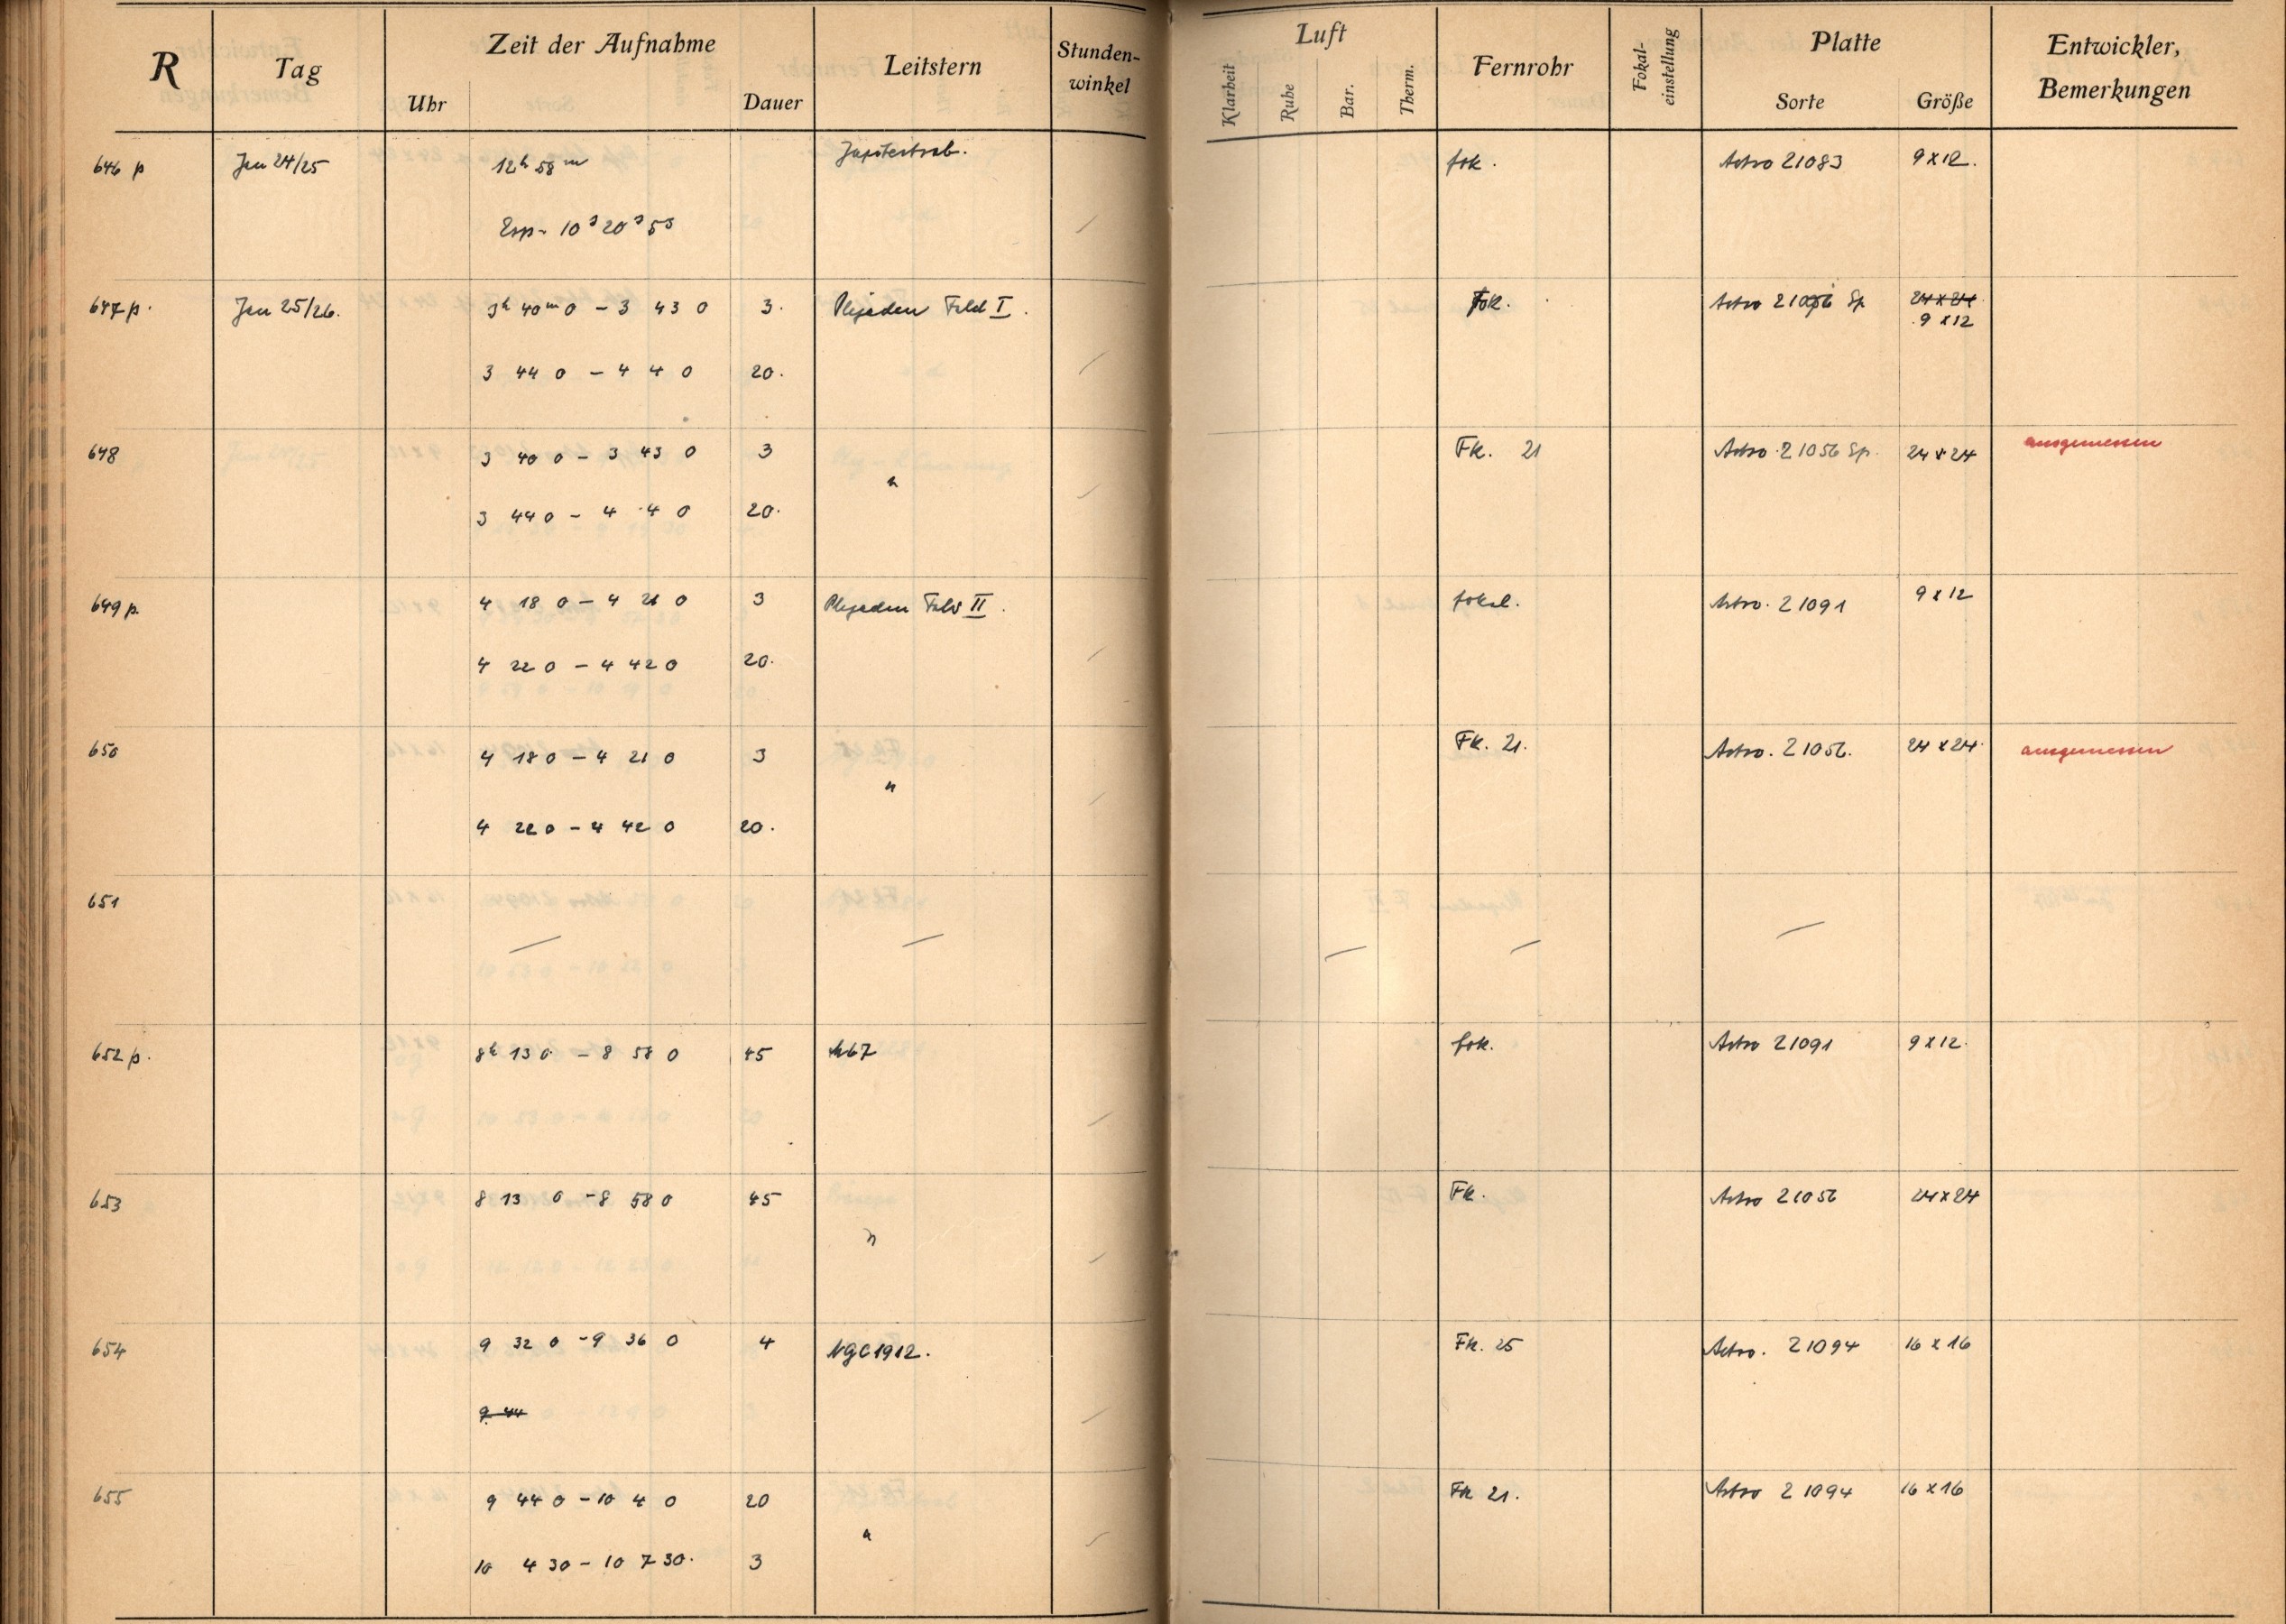 R Tag Zeit der Aufnahme Leitstern Stunden-winkel Luft Fernrohr Fokal-einstellung Platte Entwickler, Bemerkungen
Uhr Dauer Klarheit Ruhe Bar. Therm. Sorte Größe
646 p Jan 24/25 12h 58m fok. Astro 21083 9x12.
10s 20s 5s
647 p. Jan 25/26. 3h 40m 0 - 3 43 0 3. Plejaden Feld I. Fok. Astro 21056 Sp 24x24
9x12
3 44 0 - 4 4 0 20.
648 3 40 0 - 3 43 0 3 " Fk. 21 Astro 21056 Sp. 24x24 ausgemessen
3 44 0 - 4 4 0 20.
649 p. 4 18 0 - 4 21 0 3 Plejaden Feld II. fokal. Astro. 21091 9x12
4 22 0 - 4 42 0 20.
650 4 18 0 - 4 21 0 3 " Fk. 21. Astro. 21056. 24x24. ausgemessen
4 22 0 - 4 42 0 20.
651 — — — — —
652 p. 8h 13 0 - 8 58 0 45 M67 fok. Astro 21091 9x12.
653 8 13 0 - 8 58 0 45 " Fk. Astro 21056 24x24
654 9 32 0 - 9 36 0 4 NGC 1912. Fk. 25 Astro. 21094 16x16
9 44
655 9 44 0 - 10 4 0 20 " Fk 21. Astro 21094 16x16
10 4 30 - 10 7 30. 3